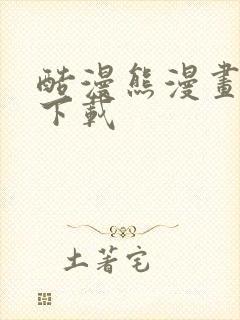 酷漫熊漫畫
下載
土著宅